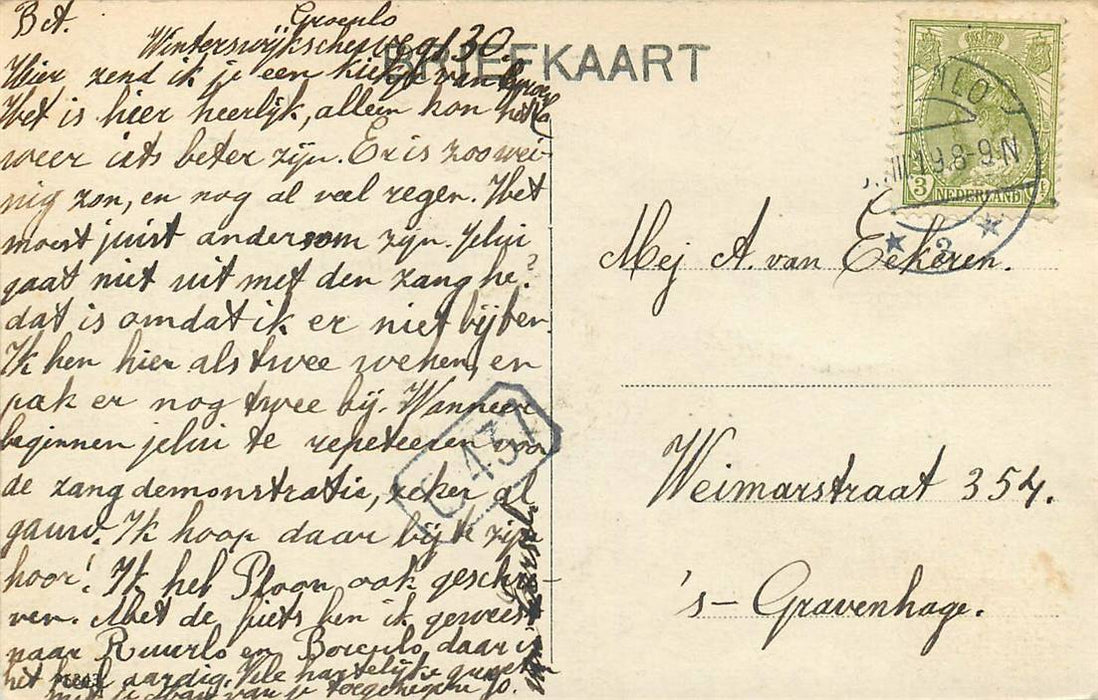 Groenlo
Bet. Winterswijkscheweg 30.
BRIEFKAART
Hier zend ik je een kiekje van Groenlo
Het is hier heerlijk, alleen kon het
weer iets beter zijn. Er is zoo wei-
nig zon, en nog al veel regen. Het
moest juist andersom zijn. Jelui
gaat niet uit met den zang he?
dat is omdat ik er niet bij ben.
Ik ben hier al twee weken, en
pak er nog twee bij. Wanneer
beginnen jelui te repeteeren voor
de zangdemonstratie, zeker al
gauw. Ik hoop daar bij te zijn
hoor! Ik heb Ploon ook geschre-
ven. Met de fiets ben ik geweest
naar Ruurlo en Borculo, daar is
het heel aardig. Vele hartelijke groeten
van je toegenegene Jo.
G 437
NLO
19.8-9.N
3
NEDERLAND
2
Mej A. van Eekeren.
Weimarstraat 354.
's-Gravenhage.